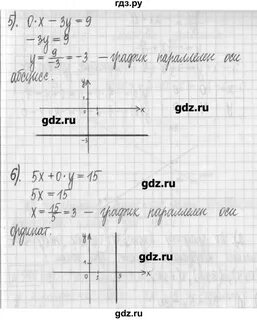 гдз.ру
5). 0·x − 3y = 9
−3y = 9
y = 9/−3 = −3 — график параллелен оси
абсцисс.
gdz.ru
y
x
gdz.ru
gdz.ru
−3
6). 5x + 0·y = 15
5x = 15
x = 15/5 = 3 — график параллелен оси
ординат.
gdz.ru
y
gdz.ru
x